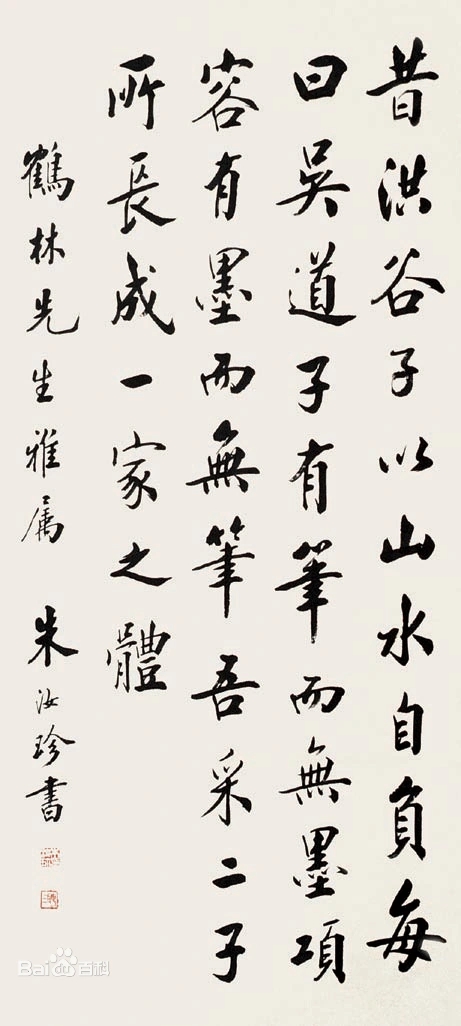 昔洪谷子以山水自負每
曰吳道子有筆而無墨項
容有墨而無筆吾采二子
所長成一家之體
鶴林先生雅属
朱汝珍書
Bai百科